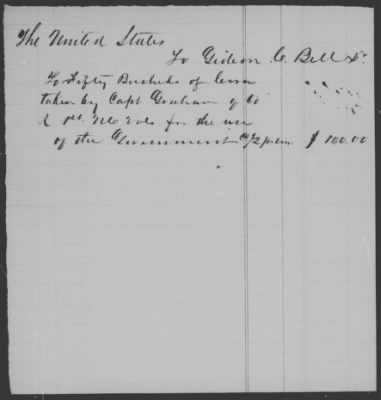 The United States
To Gideon C. Bell Dr.
To Fifty Bushels of Corn
taken by Capt Graham of Co
L 1st NC Vols for the use
of the Government @ $2 pr bu $ 100.00